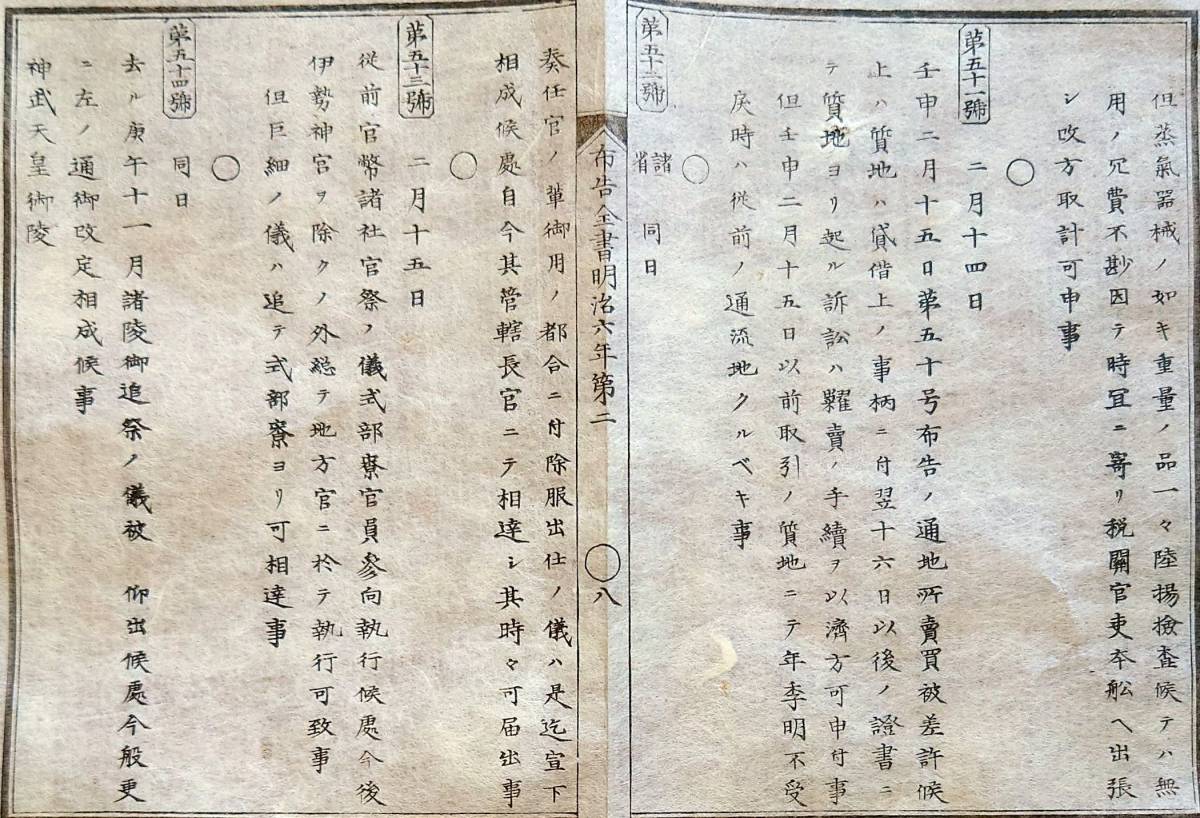 但蒸氣器械ノ如キ重量ノ品一々陸揚撿査候テハ無
用ノ冗費不尠因テ時冝ニ寄リ税關官吏本舩ヘ出張
シ改方取計可申事
○
第五十一號　二月十四日
壬申二月十五日第五十号布告ノ通地所賣買被差許候
上ハ質地ハ貸借上ノ事柄ニ付翌十六日以後ノ證書ニ
テ質地ヨリ起ル訴訟ハ糶賣ノ手續ヲ以濟方可申付事
但壬申二月十五日以前取引ノ質地ニテ年季明不受
戻時ハ従前ノ通流地タルベキ事
○
第五十二號　諸省　同日
布告全書明治六年第二　○八
奏任官ノ輩御用ノ都合ニ付除服出仕ノ儀ハ是迄宣下
相成候處自今其管轄長官ニテ相達シ其時々可届出事
○
第五十三號　二月十五日
従前官幣諸社官祭ノ儀式部寮官員參向執行候處今後
伊勢神宮ヲ除クノ外総テ地方官ニ於テ執行可致事
但巨細ノ儀ハ追テ式部寮ヨリ可相達事
○
第五十四號　同日
去ル庚午十一月諸陵御追祭ノ儀被　仰出候處今般更
ニ左ノ通御改定相成候事
神武天皇御陵